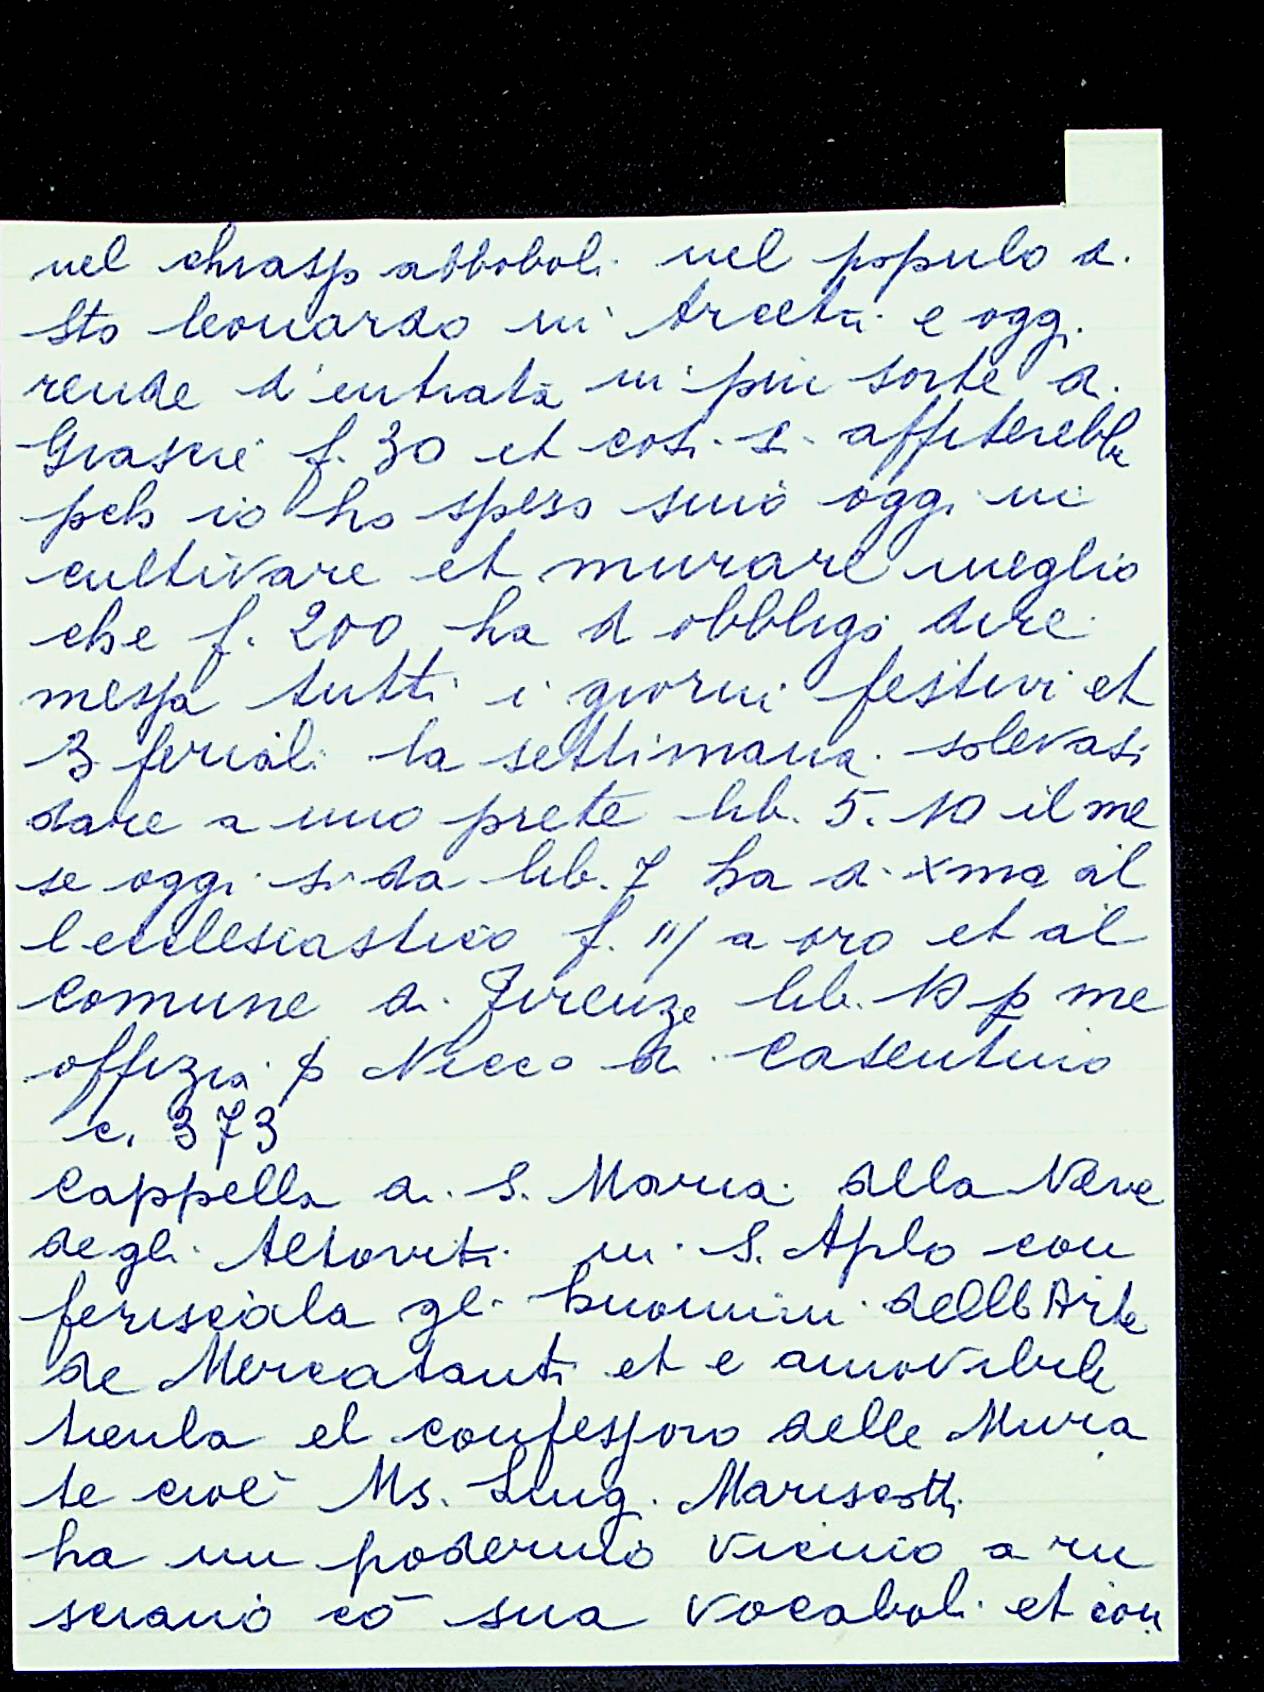 nel chiasso abboboli nel populo di
Sto leonardo in Arcetri e oggi
rende d'entrata in piu sorte di
Grascie f. 30 et cosi si affiterebbe
pch io ho speso sino oggi in
cultivare et murare meglio
che f. 200 ha d obbligo dire
messa tutti i giorni festivi et
3 feriali la settimana. solevasi
dare a uno prete lib. 5. 10 il me
se oggi si da lib. 7 ha di xma al
l ecclesiastico f. 11/ a oro et al
comune di Firenze lib. 10 p me
offizia p Nicco di Casentino
c. 373
Cappella di S. Maria della Neve
degli Altoviti in S. Aplo con
feriscola gli huomini dell Arte
de Mercatanti et e amovibile
tienla el confessoro delle Mura
te cioè Ms. Luig. Mariscotti
ha un poderino vicino a ru
sciano cō sua vocaboli et con